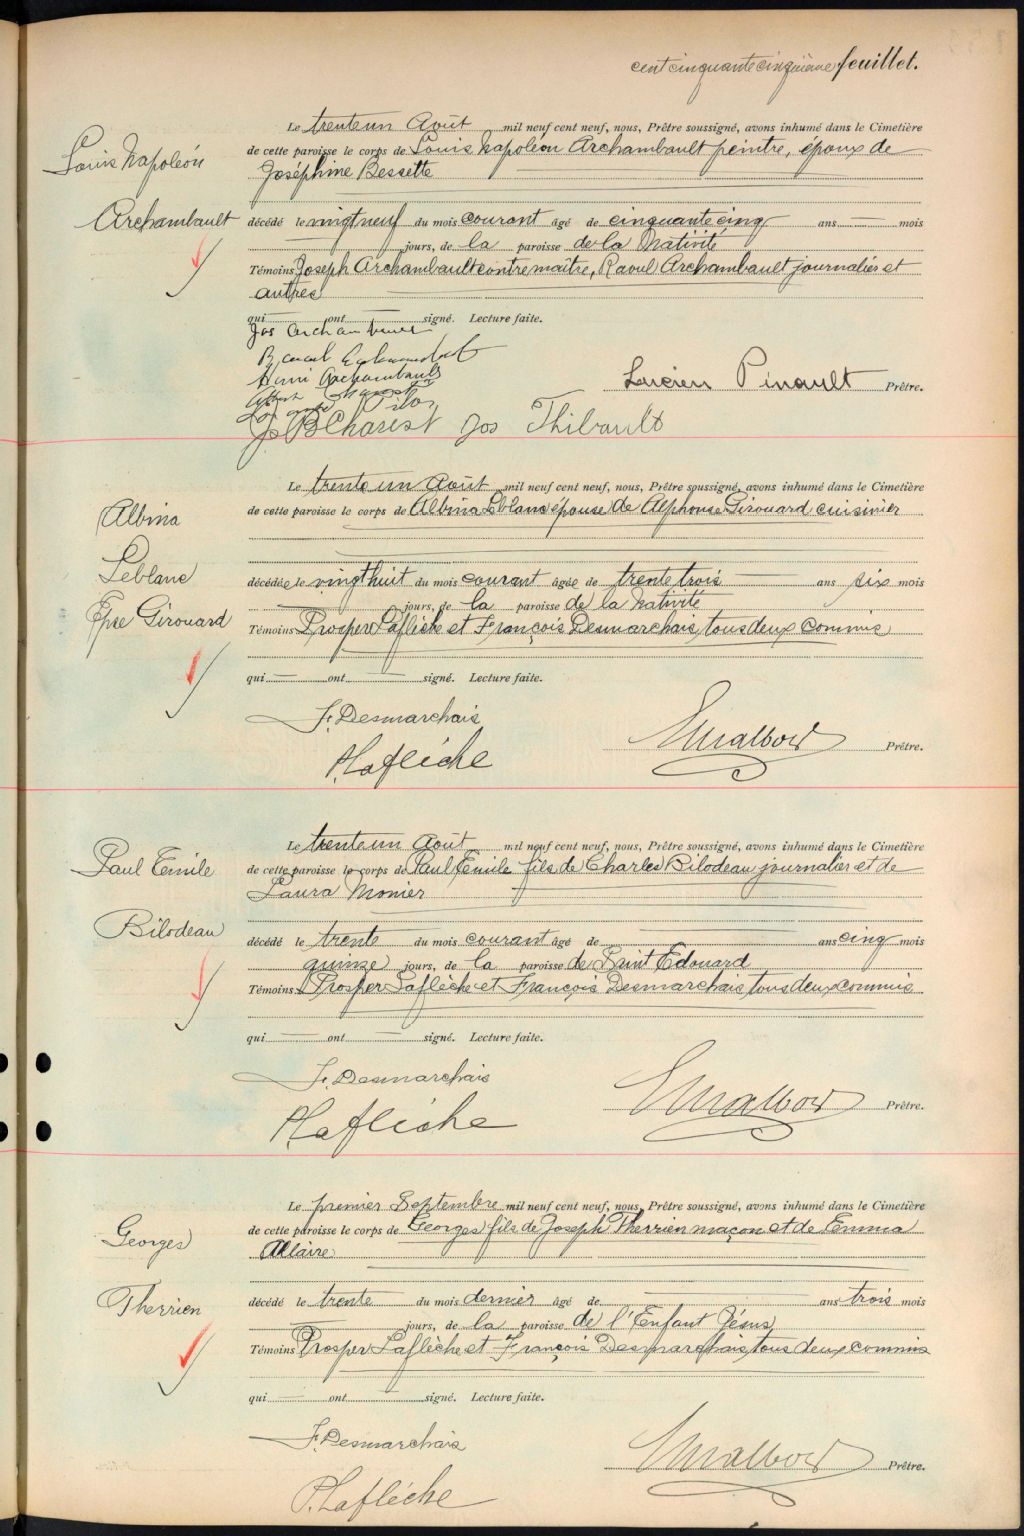 cent cinquante cinquième feuillet.
Louis Napoléon
Archambault
Le trente un Août mil neuf cent neuf, nous, Prêtre soussigné, avons inhumé dans le Cimetière
de cette paroisse le corps de Louis Napoléon Archambault peintre, époux de
Joséphine Bessette
décédé le vingt neuf du mois courant âgé de cinquante cinq ans — mois
— jours, de la paroisse de la Nativité
Témoins Joseph Archambault contremaître, Raoul Archambault journalier et
autres
qui — ont — signé. Lecture faite.
Jos Archambault
Raoul Archambault
Henri Archambault
Lucien Pinault Prêtre.
Jos Thibault
J B Charest
Albina
Leblanc
Épse Girouard
Le trente un Août mil neuf cent neuf, nous, Prêtre soussigné, avons inhumé dans le Cimetière
de cette paroisse le corps de Albina Leblanc épouse de Alphonse Girouard cuisinier
décédée le vingt huit du mois courant âgée de trente trois — ans six mois
— jours, de la paroisse de la Nativité
Témoins Prosper Laflèche et François Desmarchais, tous deux commis
qui — ont — signé. Lecture faite.
F. Desmarchais
P. Laflèche
Prêtre.
Paul Emile
Bilodeau
Le trente un Août mil neuf cent neuf, nous, Prêtre soussigné, avons inhumé dans le Cimetière
de cette paroisse le corps de Paul Emile fils de Charles Bilodeau journalier et de
Laura Monier
décédé le trente du mois courant âgé de — ans cinq mois
quinze jours, de la paroisse de Saint Edouard
Témoins Prosper Laflèche et François Desmarchais, tous deux commis
qui — ont — signé. Lecture faite.
F. Desmarchais
P. Laflèche
Prêtre.
Georges
Therrien
Le premier Septembre mil neuf cent neuf, nous, Prêtre soussigné, avons inhumé dans le Cimetière
de cette paroisse le corps de Georges fils de Joseph Therrien maçon et de Emma
Allaire
décédé le trente du mois dernier âgé de — ans trois mois
— jours, de la paroisse de l'Enfant Jésus
Témoins Prosper Laflèche et François Desmarchais, tous deux commis
qui — ont — signé. Lecture faite.
F. Desmarchais
P. Laflèche
Prêtre.